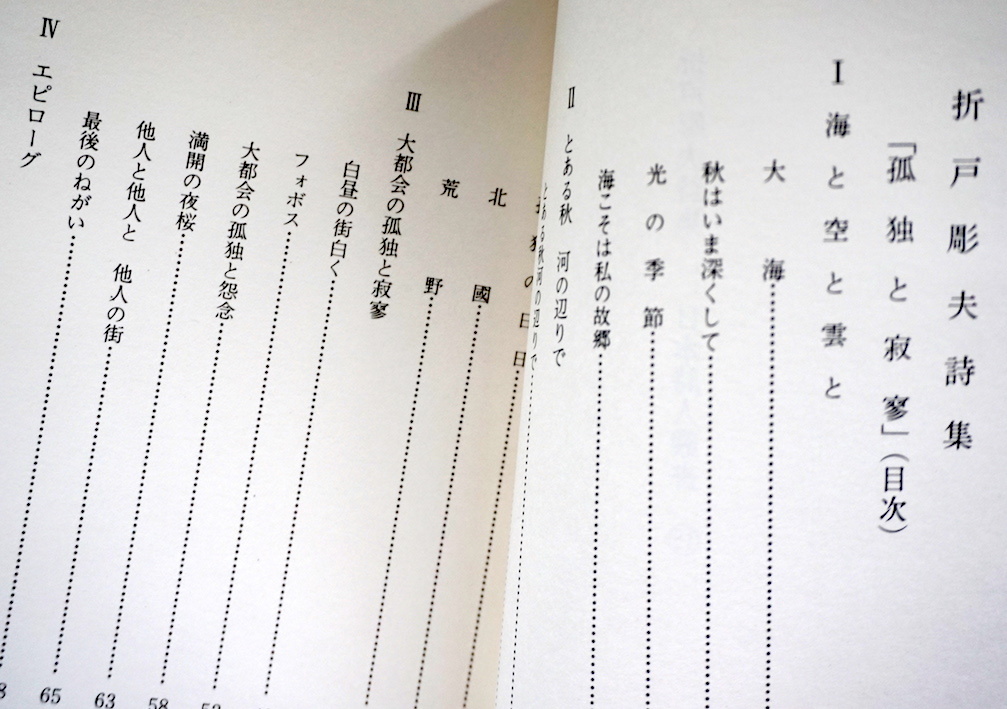 折戸彫夫詩集
「孤独と寂寥」(目次)
Ⅰ 海と空と雲と
大海……
秋はいま深くして……
光の季節……
海こそは私の故郷……
Ⅱ とある秋 河の辺りで
とある秋河の辺りで……
の日日……
北國……
荒野……
Ⅲ 大都会の孤独と寂寥
白昼の街白く……
フォボス……
大都会の孤独と怨念……
満開の夜桜……58
他人と他人と 他人の街……63
最後のねがい……65
Ⅳ エピローグ